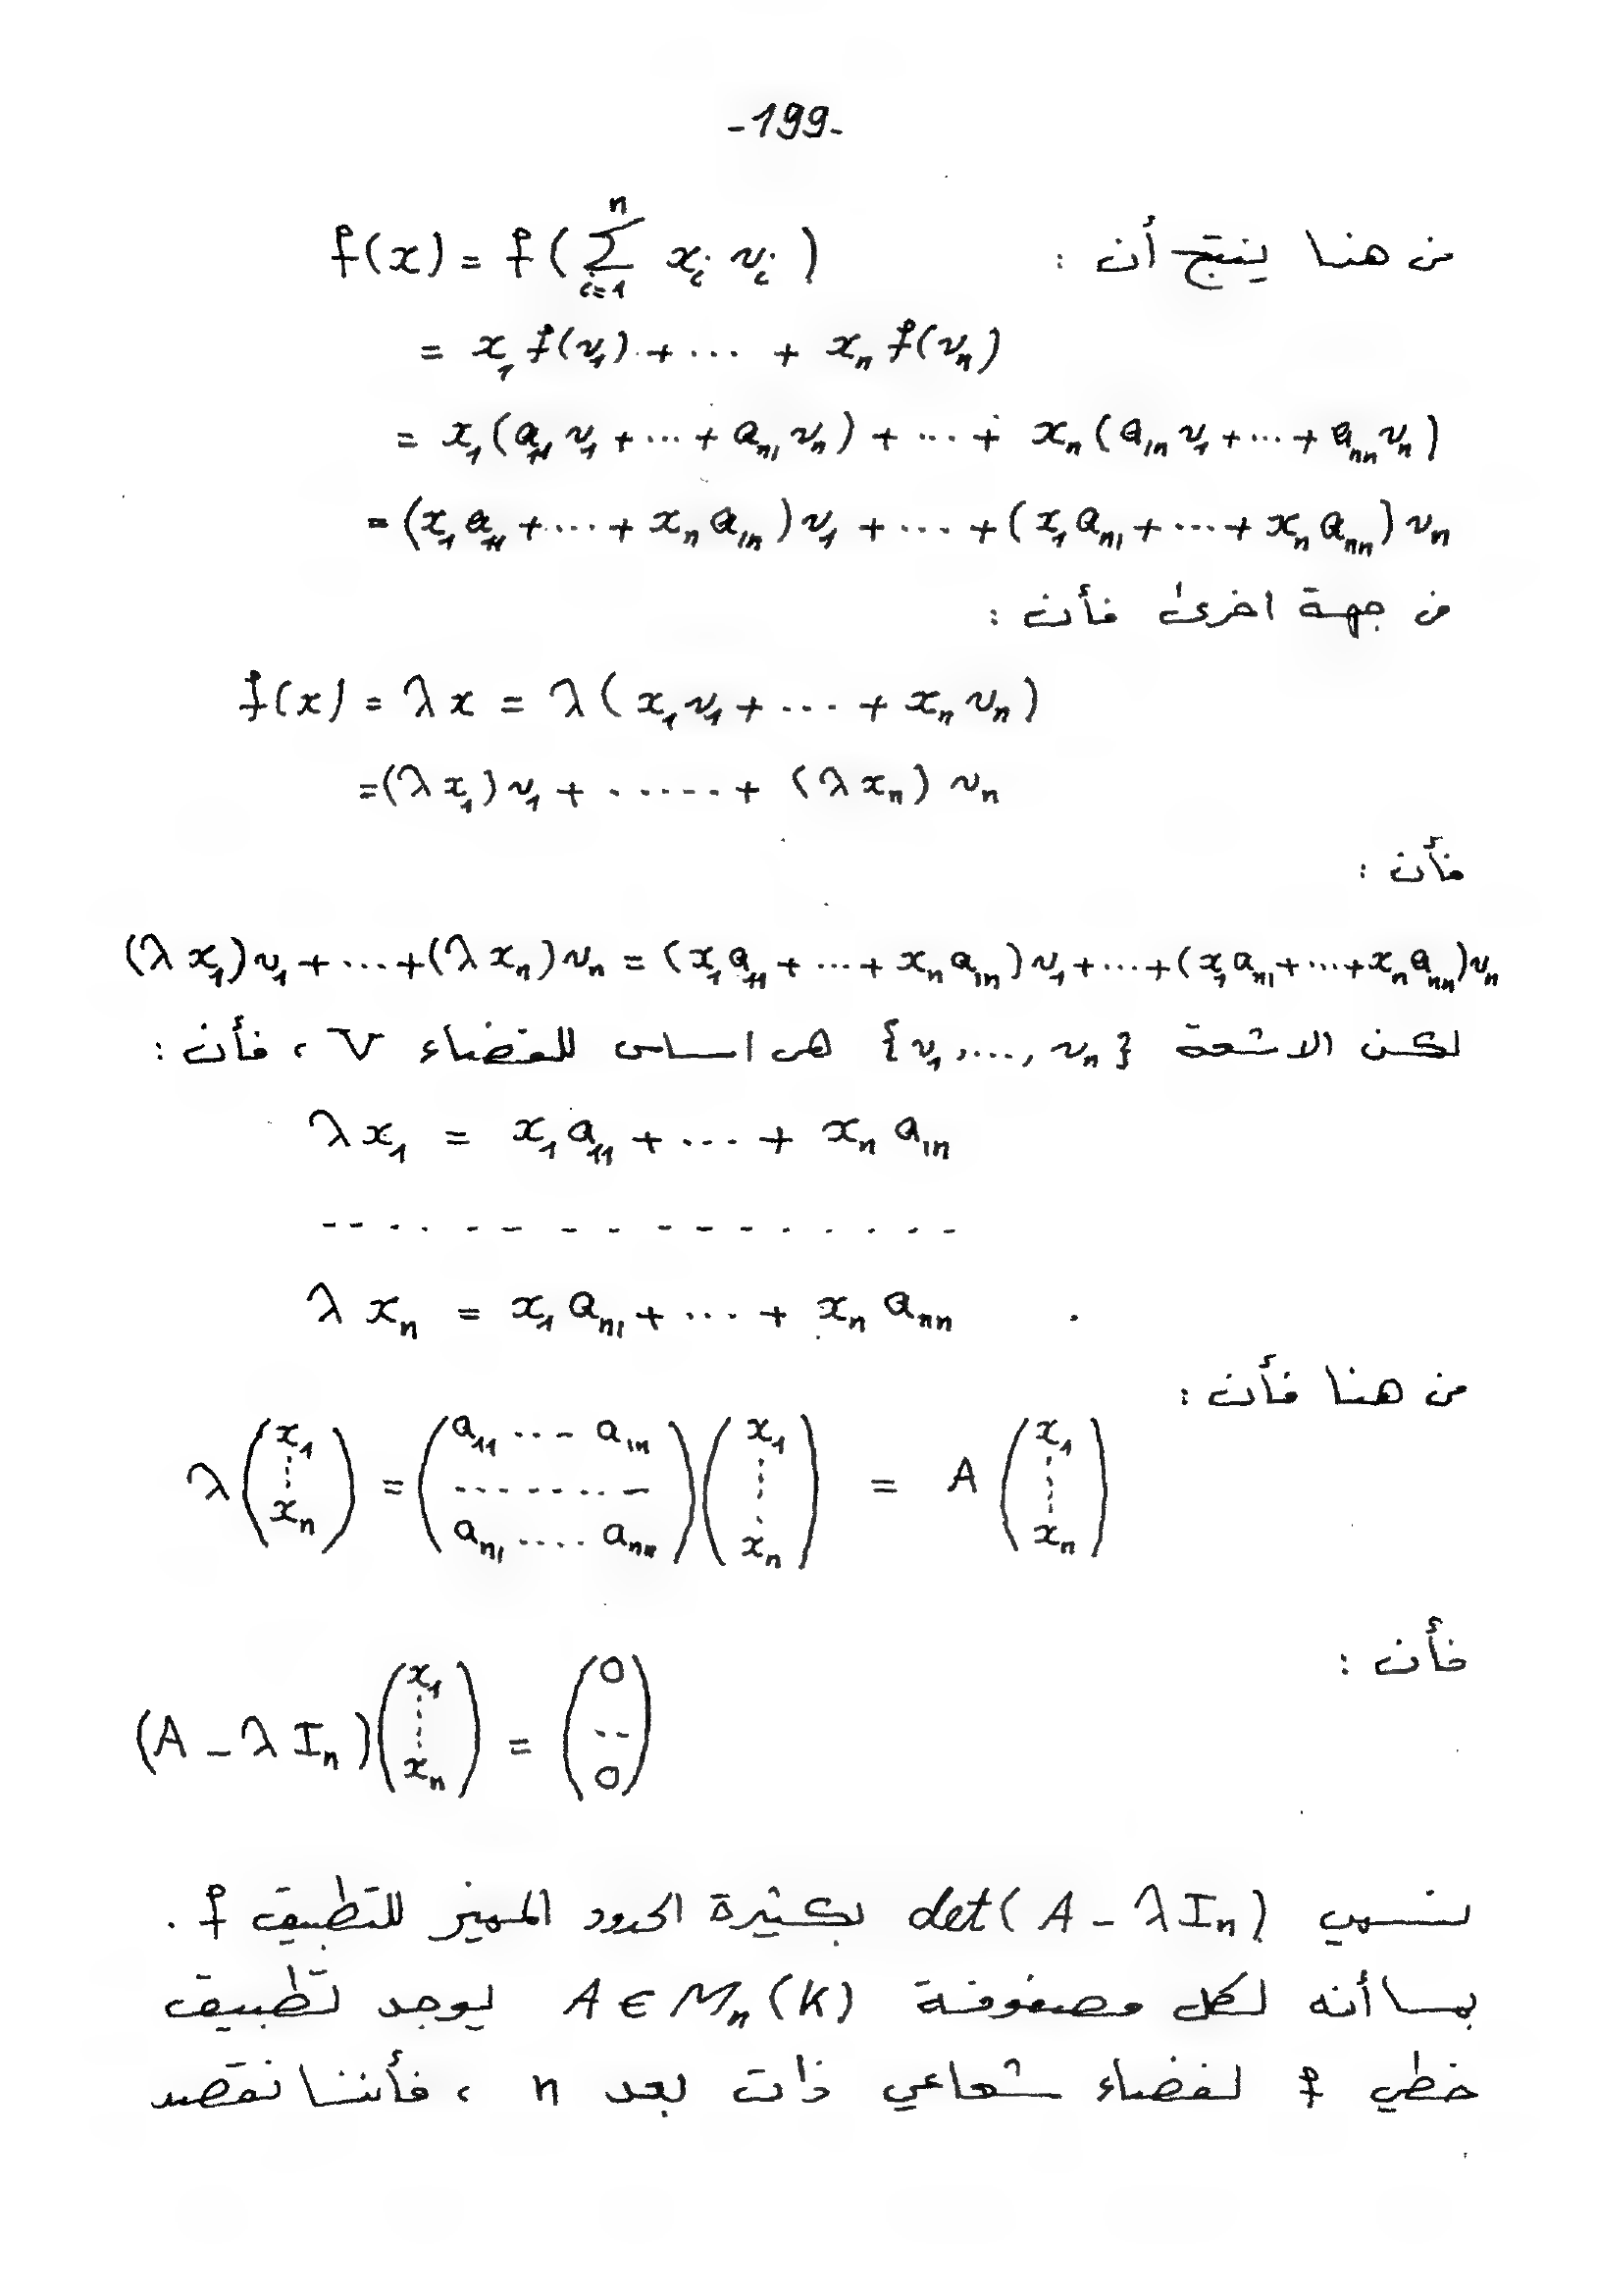 -199-
من هنا ينتج أن : f(x) = f( ∑_{i=1}^{n} x_i v_i )
= x_1 f(v_1) + ... + x_n f(v_n)
= x_1(a_11 v_1 + ... + a_n1 v_n) + ... + x_n(a_1n v_1 + ... + a_nn v_n)
= (x_1 a_11 + ... + x_n a_1n) v_1 + ... + (x_1 a_n1 + ... + x_n a_nn) v_n
من جهة اخرى فأن :
f(x) = λ x = λ ( x_1 v_1 + ... + x_n v_n )
= (λ x_1) v_1 + ...... + (λ x_n) v_n
فأن :
(λ x_1) v_1 + ... + (λ x_n) v_n = (x_1 a_11 + ... + x_n a_1n) v_1 + ... + (x_1 a_n1 + ... + x_n a_nn) v_n
لكن الاشعة {v_1, ..., v_n} هي اساس للفضاء V ، فأن :
λ x_1 = x_1 a_11 + ... + x_n a_1n
- - - - - - - - - - - - - - - -
λ x_n = x_1 a_n1 + ... + x_n a_nn .
من هنا فأن :
λ (x_1 ⋮ x_n) = (a_11 ... a_1n ------- a_n1 .... a_nn) (x_1 ⋮ x_n) = A (x_1 ⋮ x_n)
فأن :
(A - λ I_n) (x_1 ⋮ x_n) = (0 -- 0)
نسمي det( A - λ I_n ) بكثيرة الحدود المميز للتطبيق f .
بما أنه لكل مصفوفة A ∈ M_n (K) يوجد تطبيق
خطي f لفضاء شعاعي ذات بعد n ، فأننا نقصد